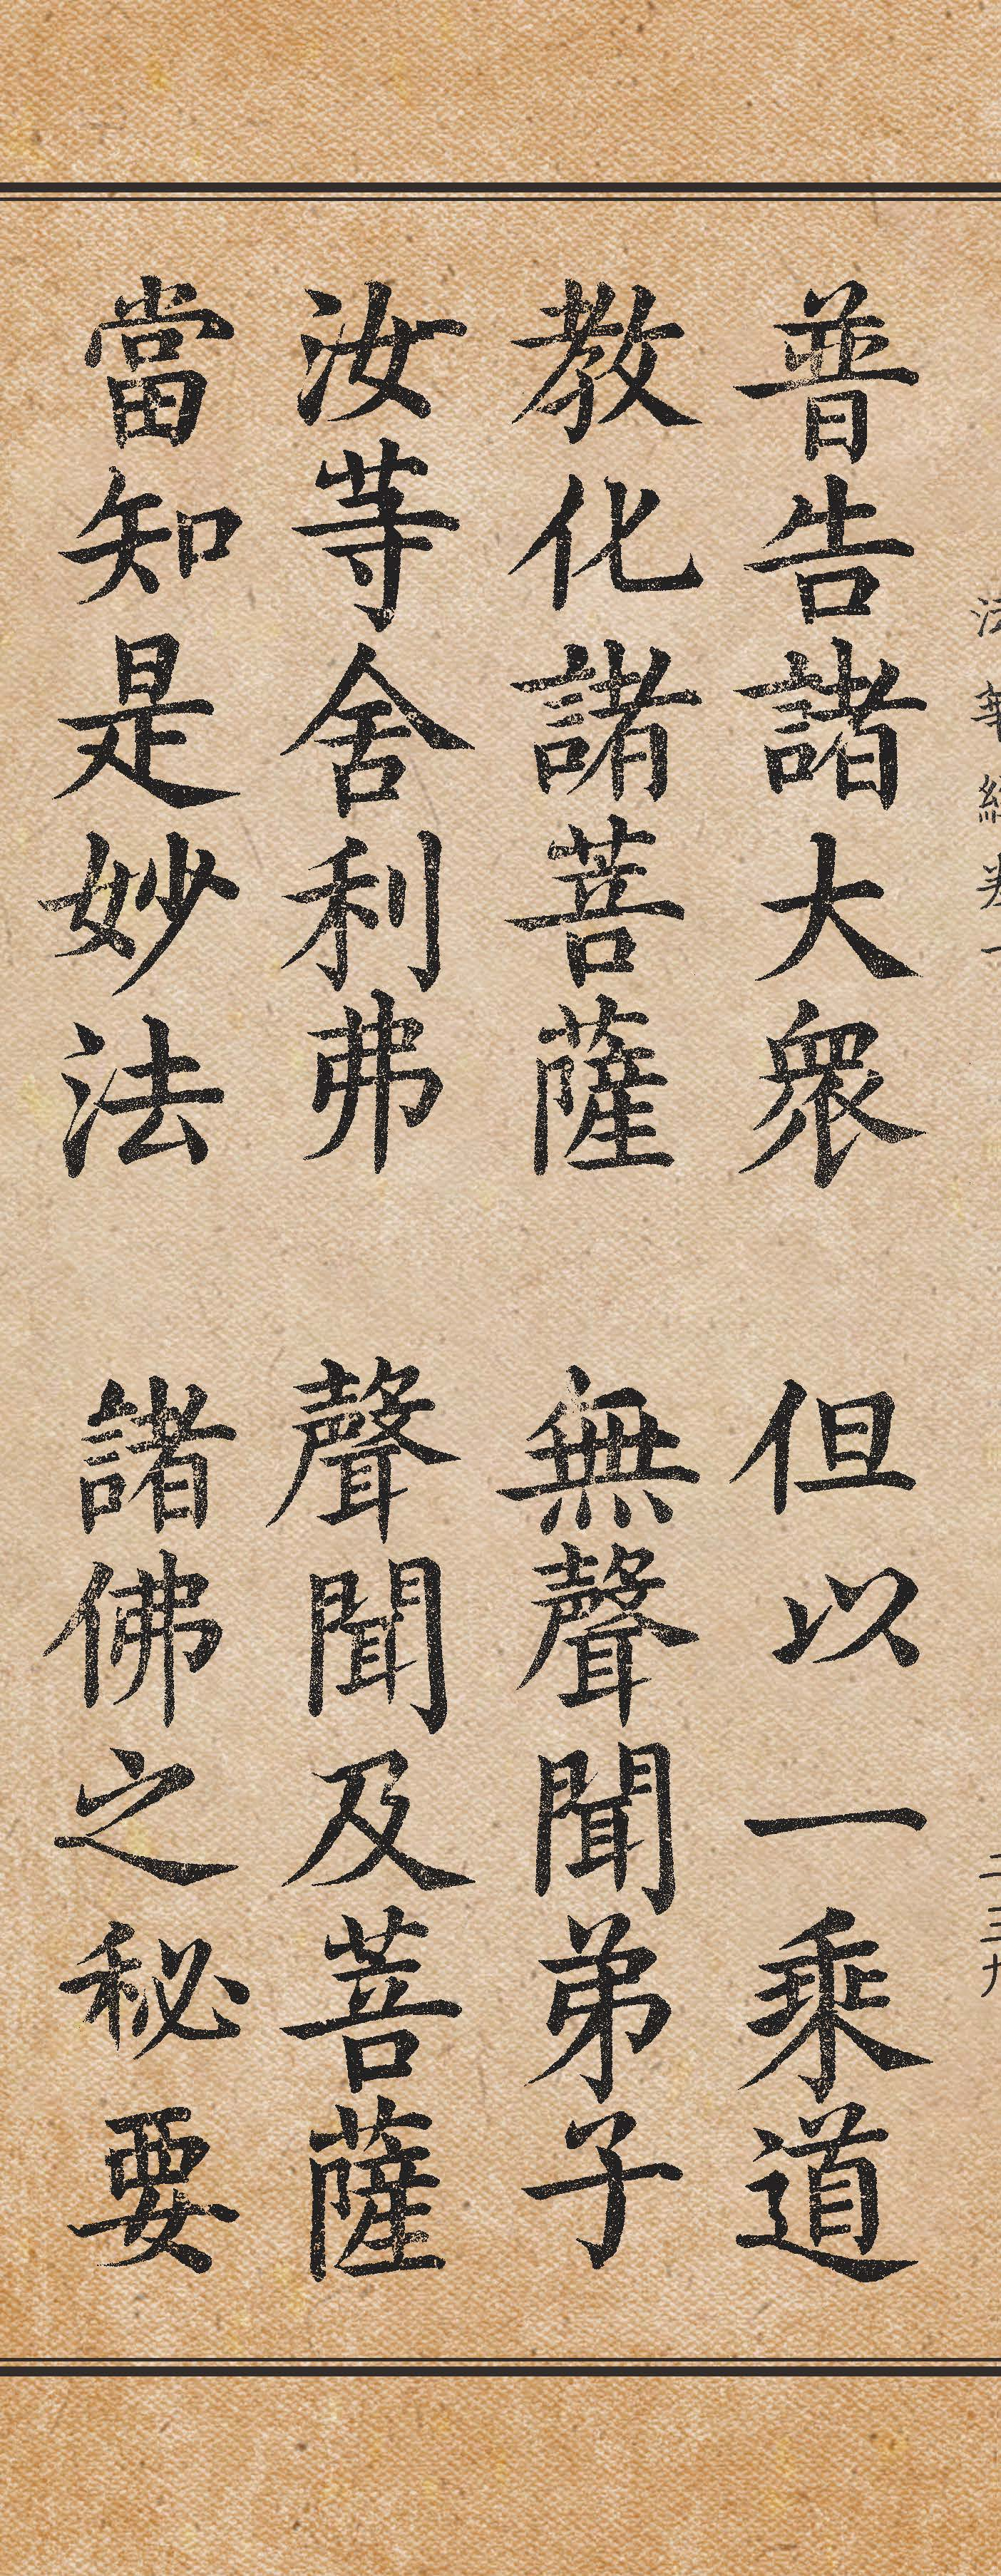 法華經卷一 二三九
普告諸大眾 但以一乘道
教化諸菩薩 無聲聞弟子
汝等舍利弗 聲聞及菩薩
當知是妙法 諸佛之秘要